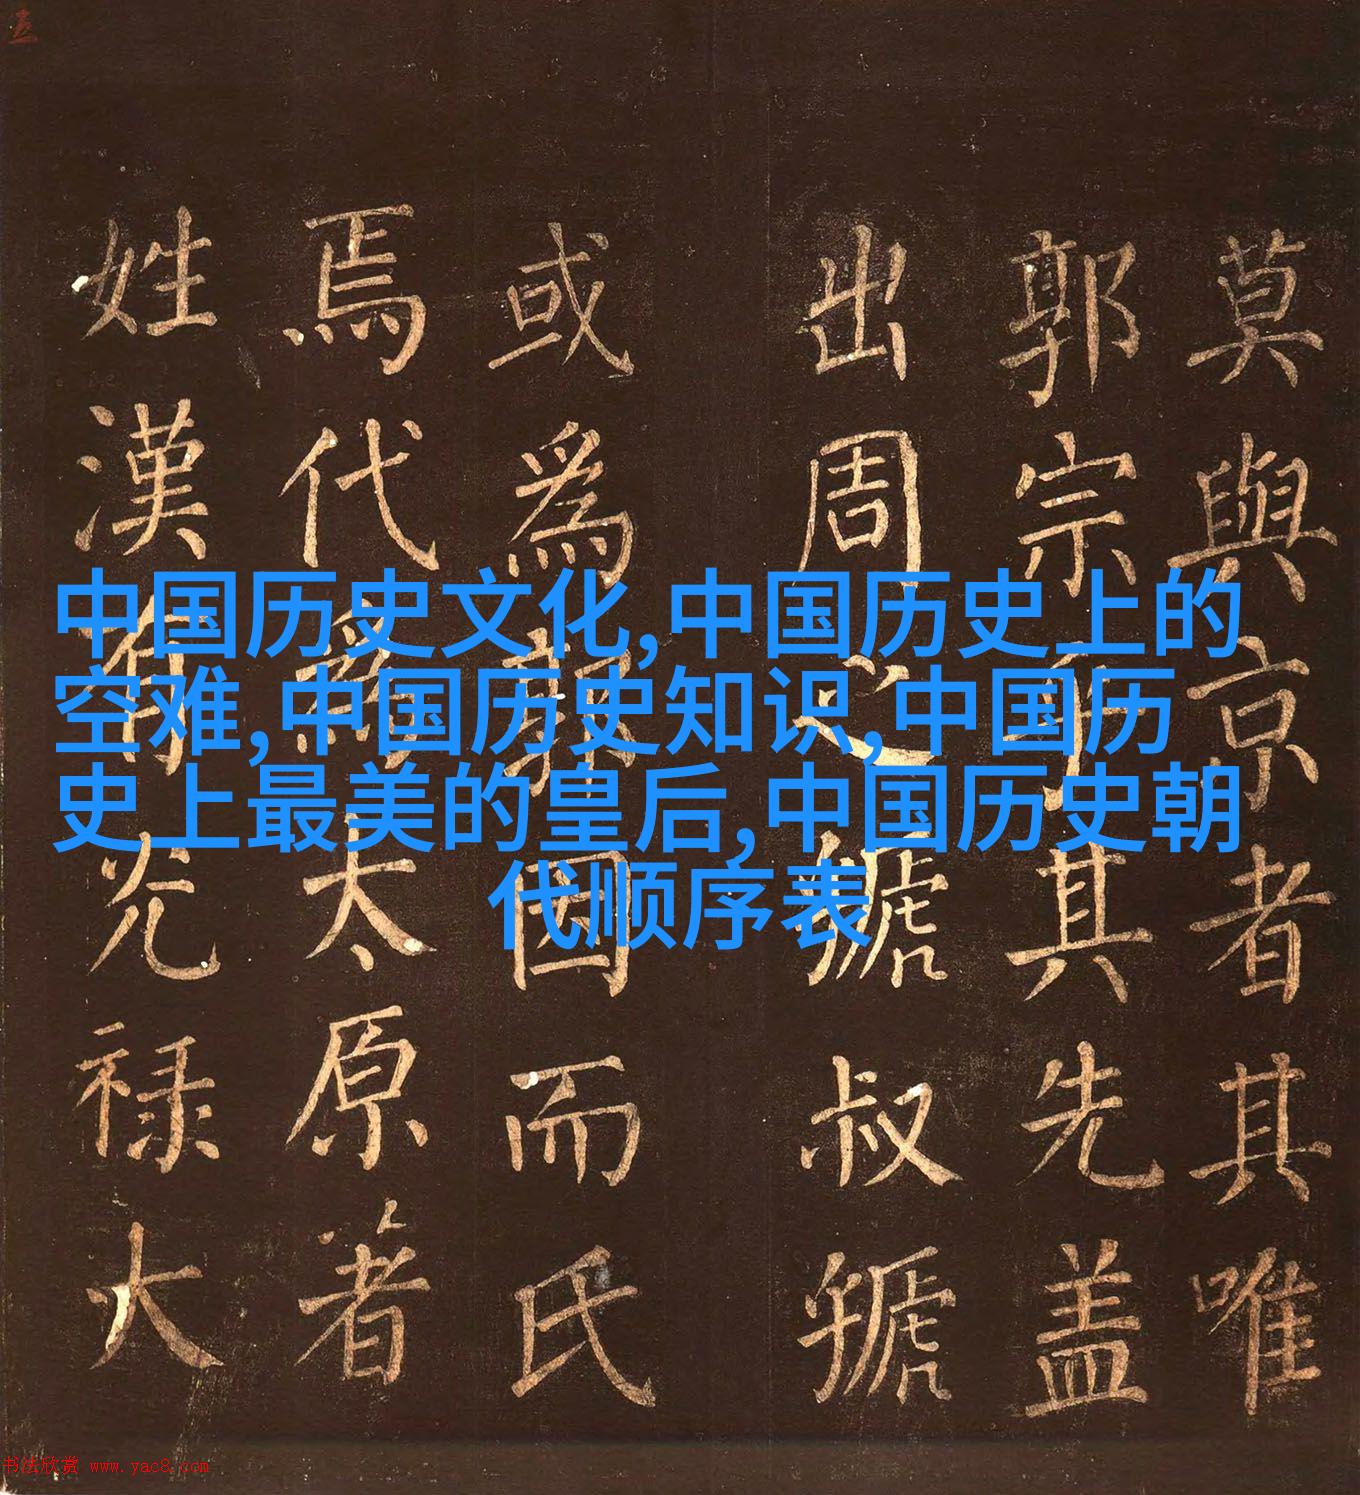 莫與京者其唯
郭宗乎其先盖
出周之虢叔虢
或為郭因而氏
焉代為太原著
姓漢有光禄大
中国历史文化,中国历史上的
空难,中国历史知识,中国历
史上最美的皇后,中国历史朝
代顺序表
书法欣赏 www.yac8.com